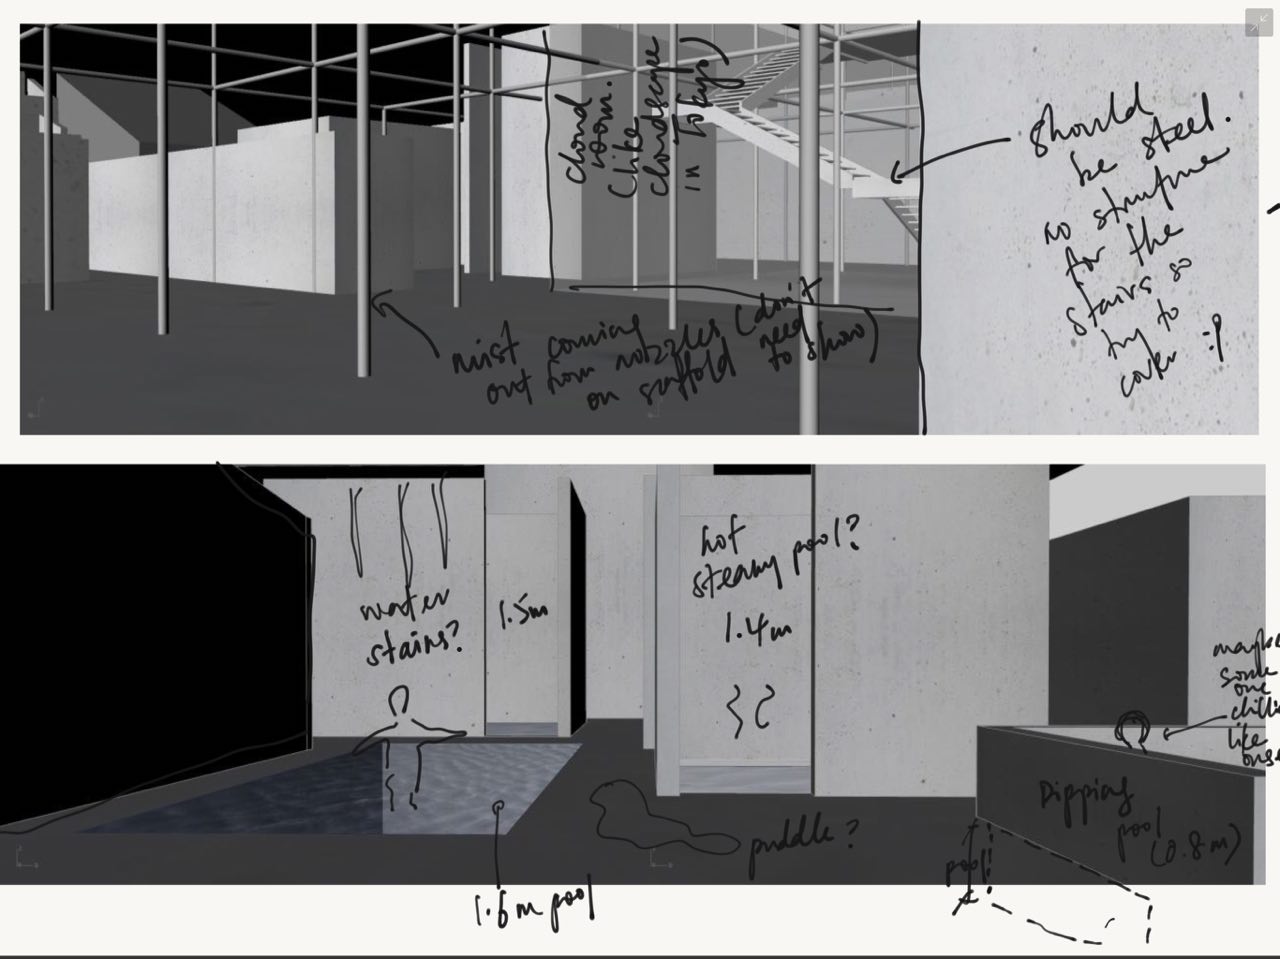 cloud
room.
(like
cloudscape
in Tokyo)
should
be steel.
no structure
for the
stairs so
try to
cover :P
mist coming
out from nozzles (don't
need
to show)
on scaffold
water
stains?
1.5m
hot
steamy pool?
1.4m
maybe
some
one
chilli
like
onse
Dipping
pool
(0.8m)
puddle?
pool
1.6m pool